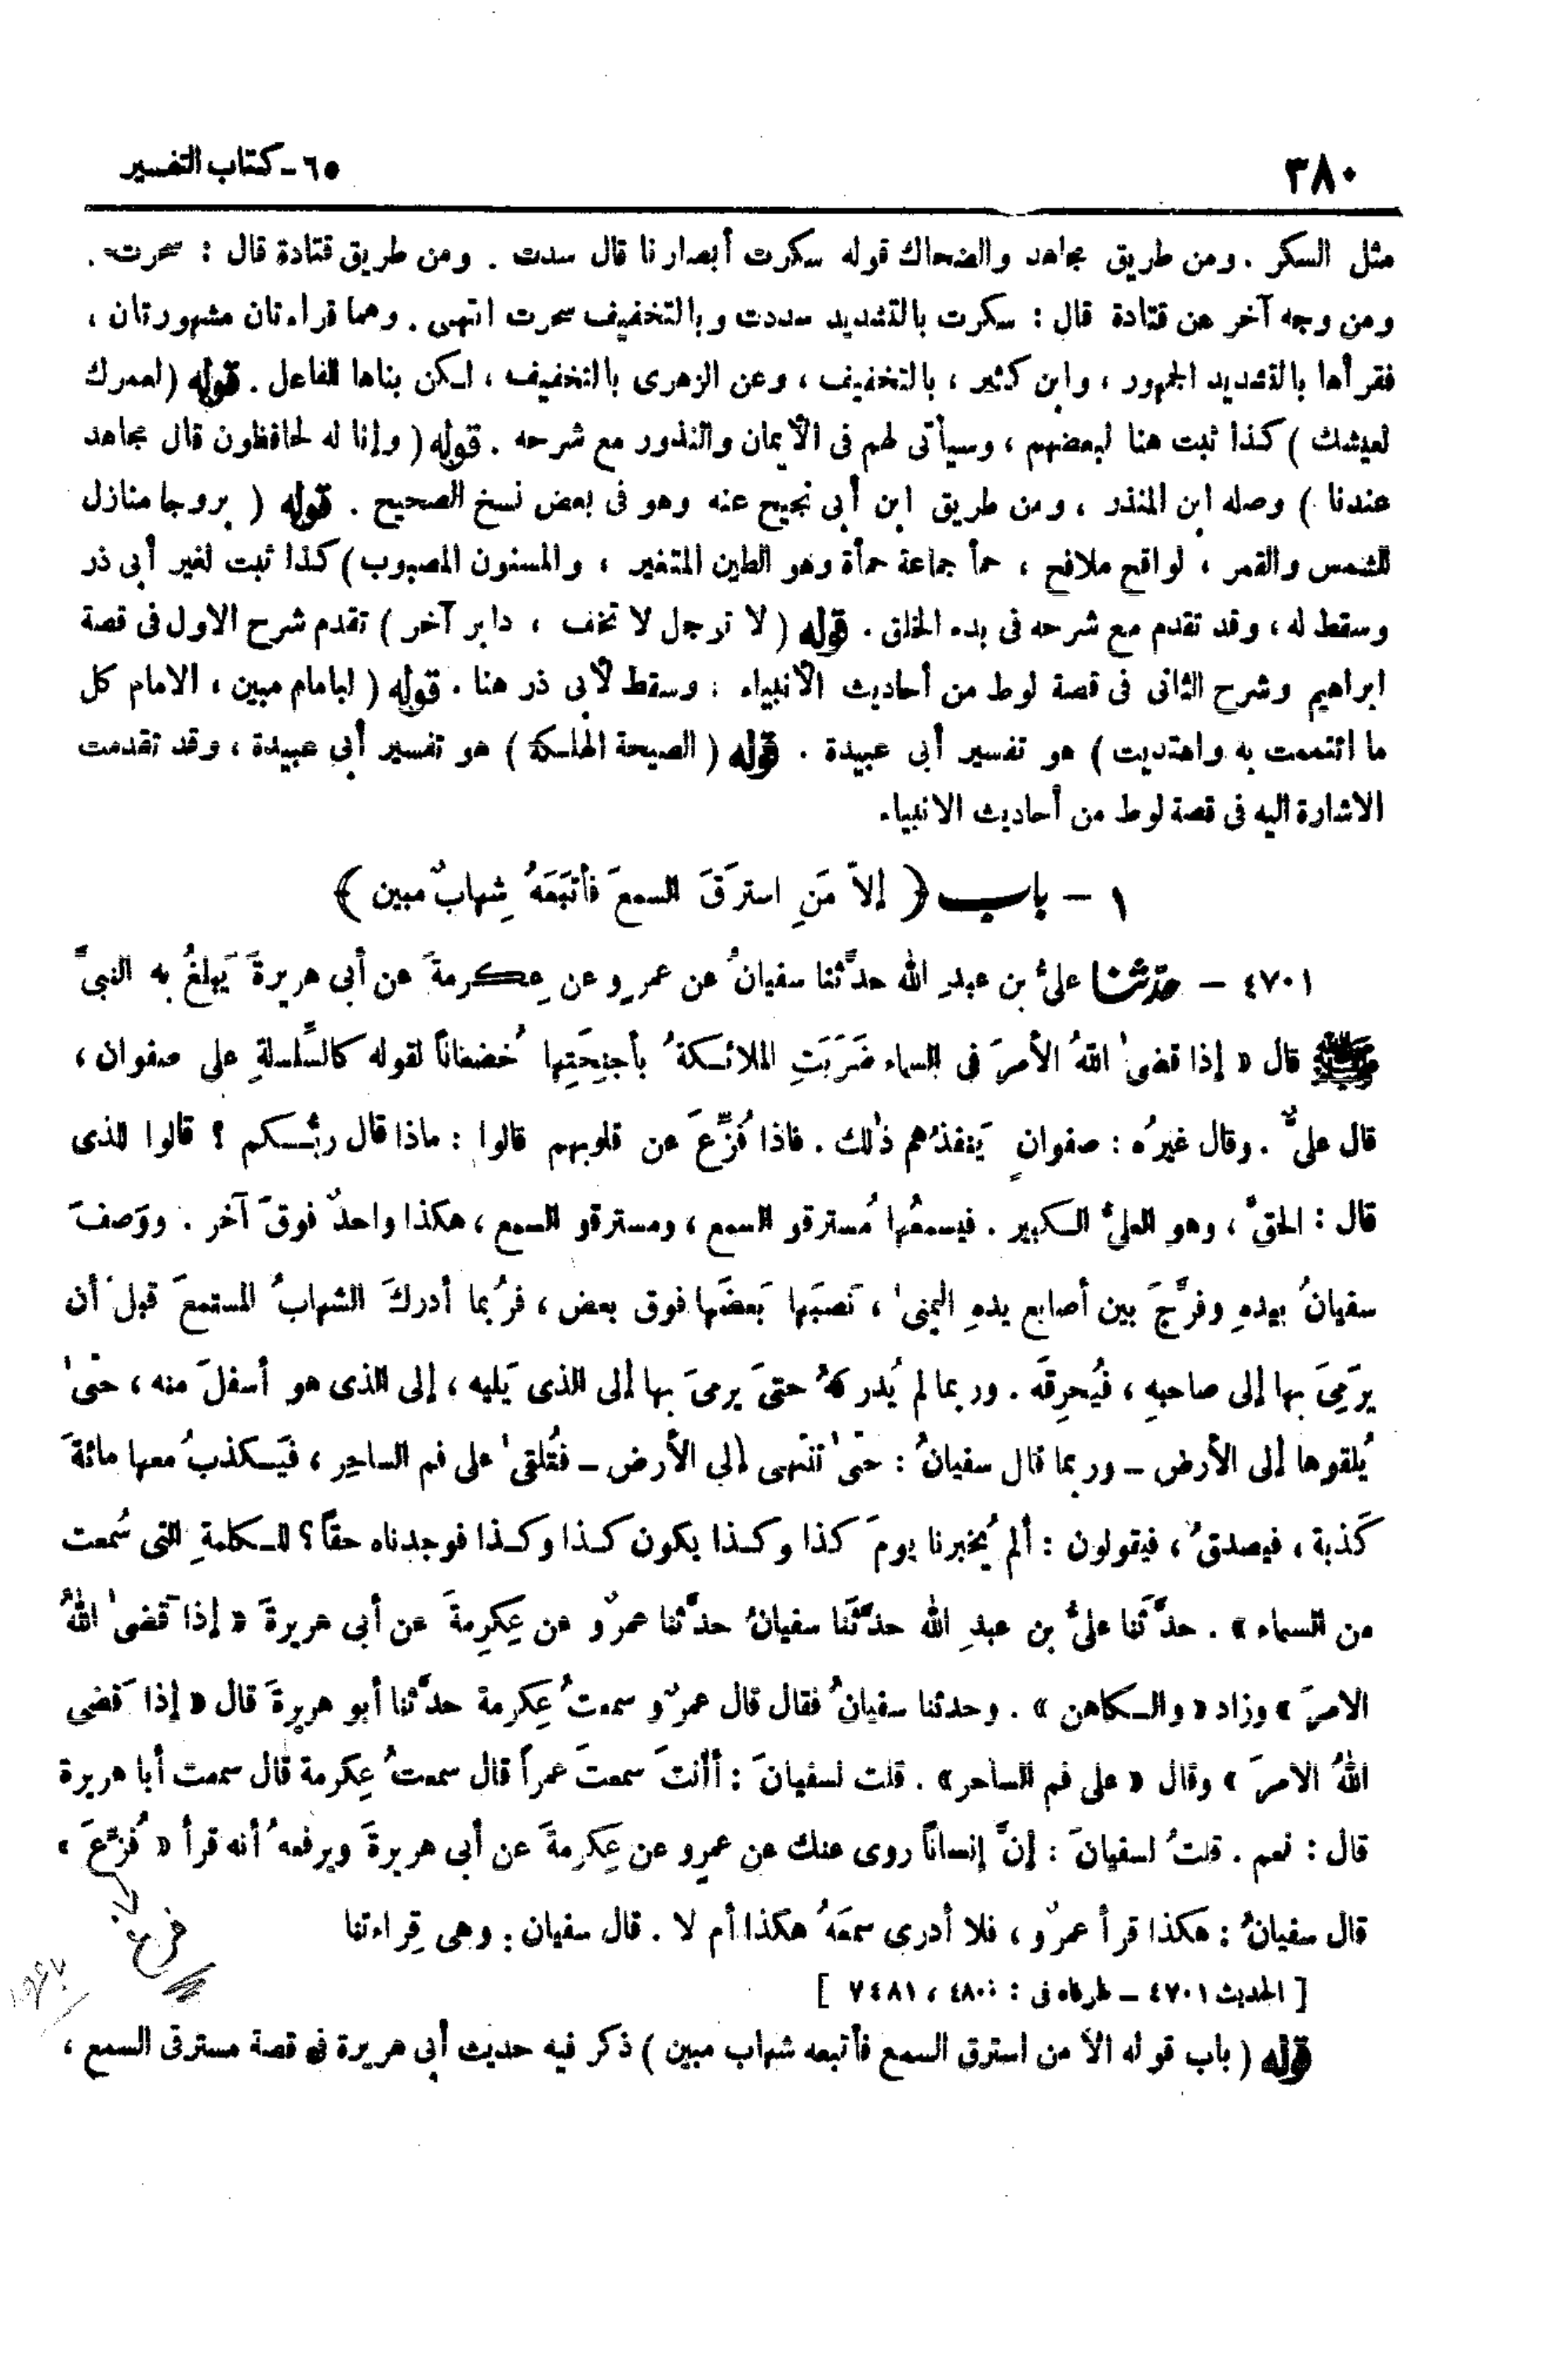 ٣٨٠
٦٥ - كتاب التفسير
مثل السكر . ومن طريق مجاهد والضحاك قوله سكرت أبصارنا قال سدت . ومن طريق قتادة قال : سحرت .
ومن وجه آخر عن قتادة قال : سكرت بالتشديد سددت وبالتخفيف سحرت انتهى . وهما قراءتان مشهورتان ،
فقرأها بالتشديد الجمهور ، وابن كثير ، بالتخفيف ، وعن الزهرى بالتخفيف ، لكن بناها للفاعل . قوله ( لعمرك
لعيشك ) كذا ثبت هنا لبعضهم ، وسيأتى لهم فى الأيمان والنذور مع شرحه . قوله ( وإنا له لحافظون قال مجاهد
عندنا ) وصله ابن المنذر ، ومن طريق ابن أبى نجيح عنه وهو فى بعض نسخ الصحيح . قوله ( بروجا منازل
للشمس والقمر ، لواقح ملاقح ، حمأ جماعة حمأة وهو الطين المتغير ، والمسنون المصبوب ) كذا ثبت لغير أبى ذر
وسقط له ، وقد تقدم مع شرحه فى بدء الخلق . قوله ( لا توجل لا تخف ، دابر آخر ) تقدم شرح الاول فى قصة
ابراهيم وشرح الثانى فى قصة لوط من أحاديث الأنبياء ؛ وسقط لأبى ذر هنا . قوله ( لبامام مبين ، الامام كل
ما ائتممت به واهتديت ) هو تفسير أبى عبيدة . قوله ( الصيحة الهلكة ) هو تفسير أبى عبيدة ، وقد تقدمت
الاشارة اليه فى قصة لوط من أحاديث الانبياء
١ - باب ﴿ إلاّ مَنِ استرَقَ السمعَ فأتبَعَهُ شِهابٌ مبين ﴾
٤٧٠١ - حدّثنا علىُّ بن عبدِ الله حدَّثنا سفيانُ عن عمرٍو عن عِكرمةَ عن أبى هريرةَ يَبلغُ به النبىَّ
ﷺ قال « إذا قضىٰ اللهُ الأمرَ فى السماء ضَرَبَتِ الملائكةُ بأجنِحَتِها خُضعَاناً لقوله كالسِّلسلةِ على صفوان ،
قال علىٌّ . وقال غيرُه : صفوانٍ يَنفذُهم ذٰلك . فاذا فُزِّعَ عن قلوبهم قالوا : ماذا قال ربُّكم ؟ قالوا للذى
قال : الحقَّ ، وهو العلىُّ الكبير . فيسمعُها مُسترقو السمع ، ومسترقو السمع ، هكذا واحدٌ فوقَ آخر . ووَصفَ
سفيانُ بيدهِ وفرَّجَ بين أصابع يدهِ اليُمنىٰ ، نَصبَها بَعضَها فوق بعض ، فرُبما أدركَ الشهابُ المستمعَ قبلَ أن
يرَمِىَ بها إلى صاحبهِ ، فيُحرِقَه . وربما لم يُدركهُ حتىَ يرمىَ بها إلى الذى يَليه ، إلى الذى هو أسفلَ منه ، حتىٰ
يُلقوها إلى الأرض - وربما قال سفيانُ : حتىٰ تنتَهى إلى الأرض - فتُلقىٰ على فم الساحِر ، فيَكذبُ معها مائةَ
كَذبة ، فيصدقُ ، فيقولون : ألم يُخبرنا يومَ كذا وكذا يكون كذا وكذا فوجدناه حقاً ؟ للكلمةِ التى سُمعت
من السماء » . حدَّثَنا علىُّ بن عبدِ الله حدَّثَنا سفيانُ حدَّثنا عمرٌو عن عِكرِمةَ عن أبى هريرةَ « إذا قَضىٰ اللهُ
الامرَ » وزاد « والكاهن » . وحدثنا سفيانُ فقال قال عمرٌو سمعتُ عِكرمة حدَّثنا أبو هريرةَ قال « إذا قَضى
اللهُ الامرَ » وقال « على فم الساحر » . قلت لسفيانَ : أأنتَ سمعتَ عمراً قال سمعتُ عِكرمة قال سمعت أبا هريرة
قال : نعم . قلتُ لسفيانَ : إنَّ إنساناً روى عنك عن عمرٍو عن عِكرِمةَ عن أبى هريرةَ ويرفعهُ أنه قرأ « فُزِّعَ »
قال سفيانُ : هكذا قرأ عمرٌو ، فلا أدرى سمعَهُ هكذا أم لا . قال سفيان : وهى قِراءتنا
[ الحديث ٤٧٠١ - طرفاه فى : ٤٨٠٠ ، ٧٤٨١ ]
قوله ( باب قوله الا من استرق السمع فأتبعه شهاب مبين ) ذكر فيه حديث أبى هريرة فى قصة مسترقى السمع ،